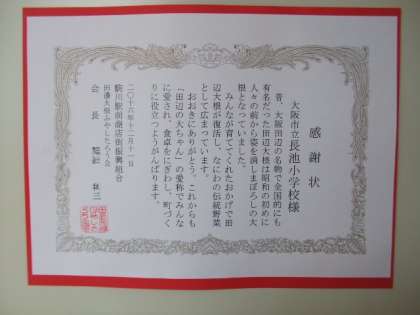 感謝状
大阪市立長池小学校様
昔、大阪田辺の名物で全国的にも
有名だった田辺大根は昭和の初めに
人々の前から姿を消しまぼろしの大
根となっていました。
みんなが育ててくれたおかげで田
辺大根が復活し、なにわの伝統野菜
として広まっています。
おおきにありがとう。これからも
「田辺の大ちゃん」の愛称でみんな
に愛され、食卓をにぎわし、町づく
りに役立つようがんばります。
二〇十六年十二月十一日
駒川駅前商店街振興組合
田辺大根ふやしたろう会
会長